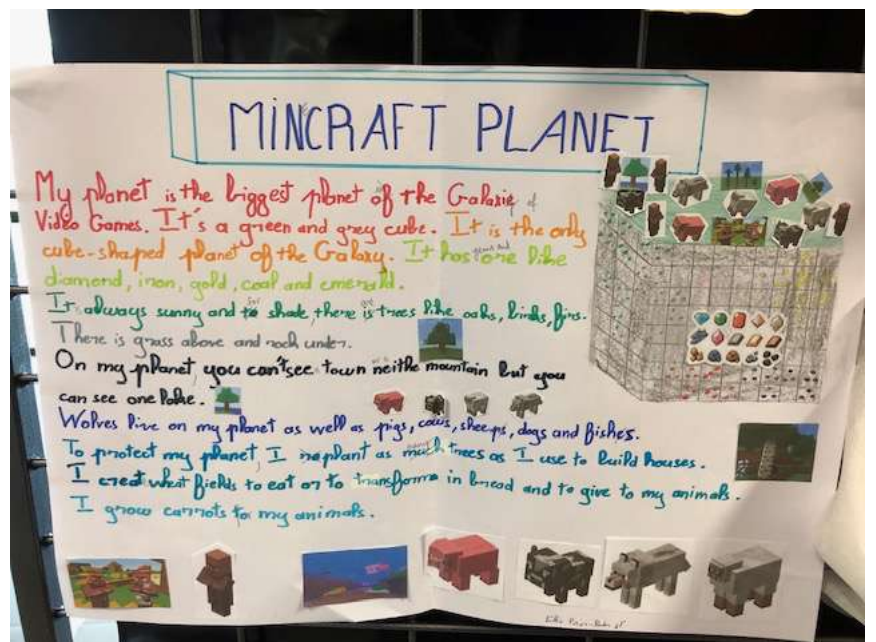 MINCRAFT PLANET
My planet is the biggest planet of the Galaxie of
Video Games. It's a green and grey cube. It is the only
cube-shaped planet of the Galaxy. It has ore like
diamond, iron, gold, coal and emerald.
It always sunny and to shade, there is trees like oaks, birchs, firs.
There is grass above and rock under.
On my planet, you can't see town neithe mountain but you
can see one lake.
Wolves live on my planet as well as pigs, cows, sheeps, dogs and fishes.
To protect my planet, I replant as much trees as I use to build houses.
I creat what fields to eat or to transforme in bread and to give to my animals.
I grow carrots to my animals.